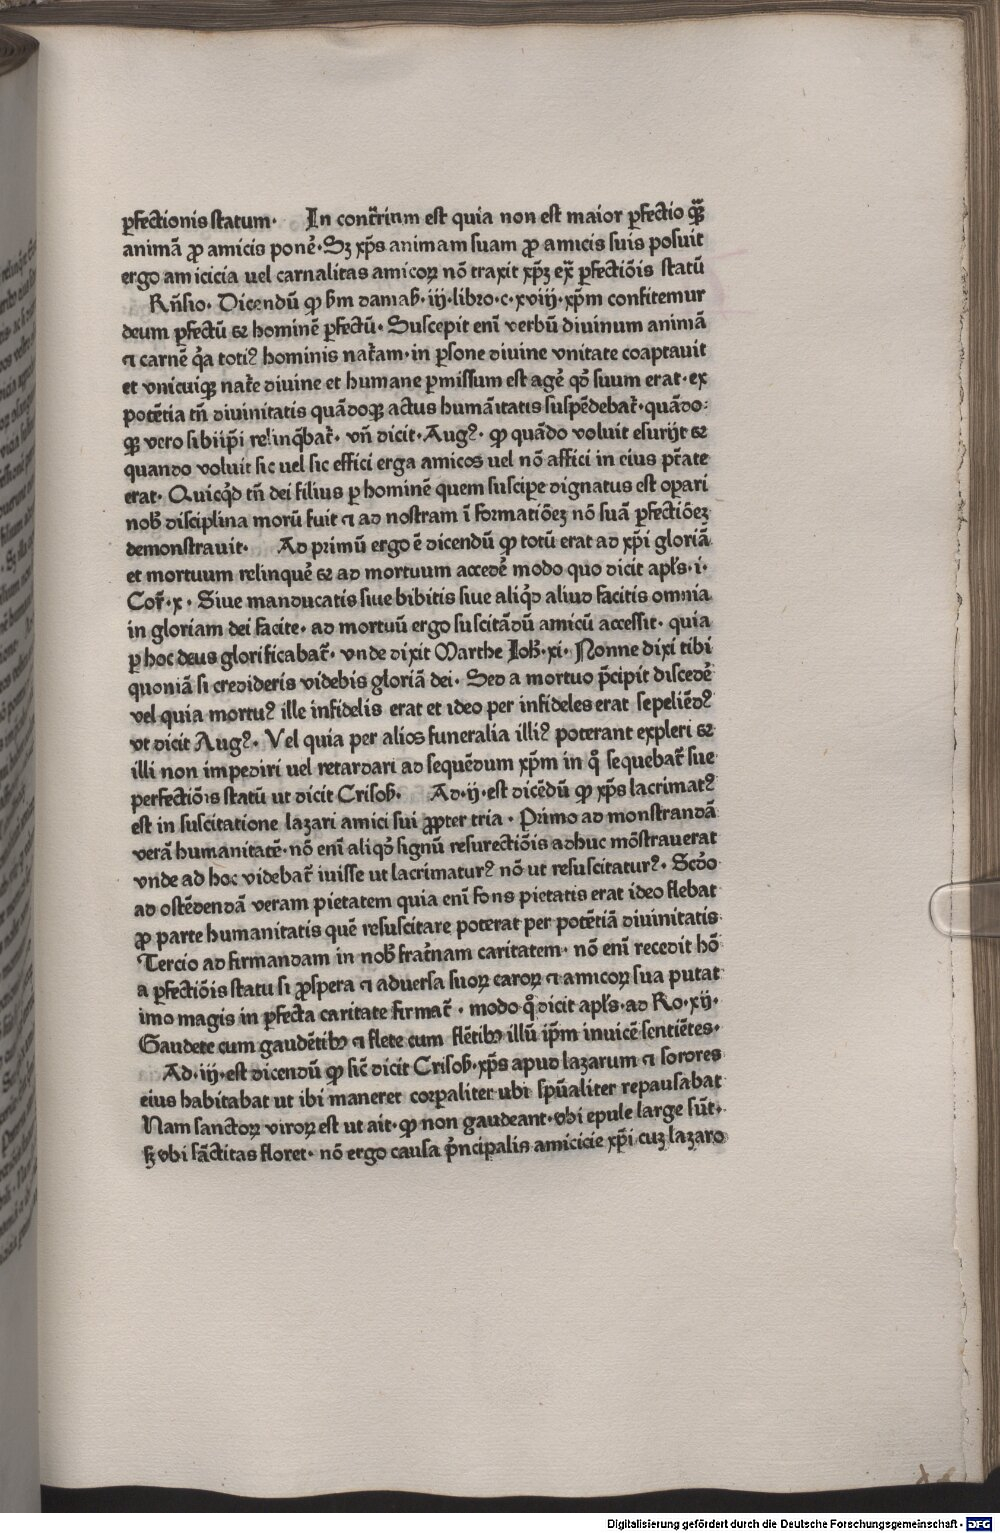 ꝑfectionis statum· In contr̄rium est quia non est maior ꝑfectio qͣꝫ
animā ꝓ amicis ponē· Sꝫ xp̄s animam suam ꝓ amicis suis posuit
ergo amicicia uel carnalitas amicoꝝ nō traxit xp̄ꝫ ex̄ ꝑfectiōis statū
Rn̄sio· Dicendū ꝙ ẜm damaẜ· iij·libro·c·xviij·xp̄m confitemur
deum ꝑfectū ⁊ hominē ꝑfectū· Suscepit eni᷑ verbū diuinum animā
⁊ carnē qͥa totiꝰ hominis nat᷑am· in ꝑsone diuine vnitate coaptauit
et vnicuiqꝫ nat᷑e diuine et humane ꝑmissum est agē qd̓ suum erat· ex
potētia tn̄ diuinitatis quādoqꝫ actus humāitatis suspēdebat᷑· quādo:
qꝫ vero sibiip̄i relinq̄bat᷑· vn̄ dicit· Augꝰ· ꝙ quādo voluit esurijt ⁊
quando voluit sic uel sic effici erga amicos uel nō affici in eius pt̄ate
erat· Quicqͥd tn̄ dei filius ꝑ hominē quem suscipe dignatus est oꝑari
nob̓ disciplina morū fuit ⁊ ad nostram ī formatiōeꝫ nō suā ꝑfectiōeꝫ
demonstrauit· Ad primū ergo ē dicendū ꝙ totū erat ad xp̄i gloriā
et mortuum relinquē ⁊ ad mortuum accedē modo quo dicit apl̓s·i·
Cor̄·x· Siue manducatis siue bibitis siue aliqͥd aliud facitis omnia
in gloriam dei facite· ad mortuū ergo suscitādū amicū accessit· quia
ꝑ hoc deus glorificabat᷑· vnde dixit Marthe Ioh̓·xi· Nonne dixi tibi
quoniā si credideris videbis gloriā dei· Sed a mortuo p̄cipit discedē
vel quia mortuꝰ ille infidelis erat et ideo per infideles erat sepeliēdꝰ
vt dicit Augꝰ· Vel quia per alios funeralia illiꝰ poterant expleri ⁊
illi non impediri uel retardari ad sequēdum xp̄m in qͦ sequebat᷑ sue
perfectiōis statū ut dicit Crisoẜ· Ad·ij·est dicēdū ꝙ xp̄s lacrimatꝰ
est in suscitatione lazari amici sui ꝓpter tria· Primo ad monstrandā
verā humanitatē· nō eni᷑ aliqd̓ signū resurectiōis adhuc mōstrauerat
vnde ad hoc videbat᷑ iuisse ut lacrimaturꝰ nō ut resuscitaturꝰ· Scd̓o
ad ostēdendā veram pietatem quia eni᷑ fons pietatis erat ideo flebat
ꝓ parte humanitatis quē resuscitare poterat per potētiā diuinitatis
Tercio ad firmandam in nob̓ frat᷑nam caritatem· nō eni᷑ recedit hō
a ꝑfectiōis statu si ꝓspera ⁊ aduersa suoꝝ caroꝝ ⁊ amicoꝝ sua putat
imo magis in ꝑfecta caritate firmat᷑· modo qͦ dicit apl̓s·ad Ro·xij·
Gaudete cum gaudētibꝫ ⁊ flete cum flētibꝫ illū ip̄m inuicē sentiētes·
Ad·iij·est dicendū ꝙ sic̄ dicit Crisoẜ· xp̄s apud lazarum ⁊ sorores
eius habitabat ut ibi maneret corꝑaliter ubi sp̄ualiter repausabat
Nam sanctoꝝ viroꝝ est ut ait· ꝙ non gaudeant· vbi epule large sūt·
sꝫ vbi sāctitas floret· nō ergo causa pͥncipalis amicicie xp̄i cuꝫ lazaro
Digitalisierung gefördert durch die Deutsche Forschungsgemeinschaft - DFG